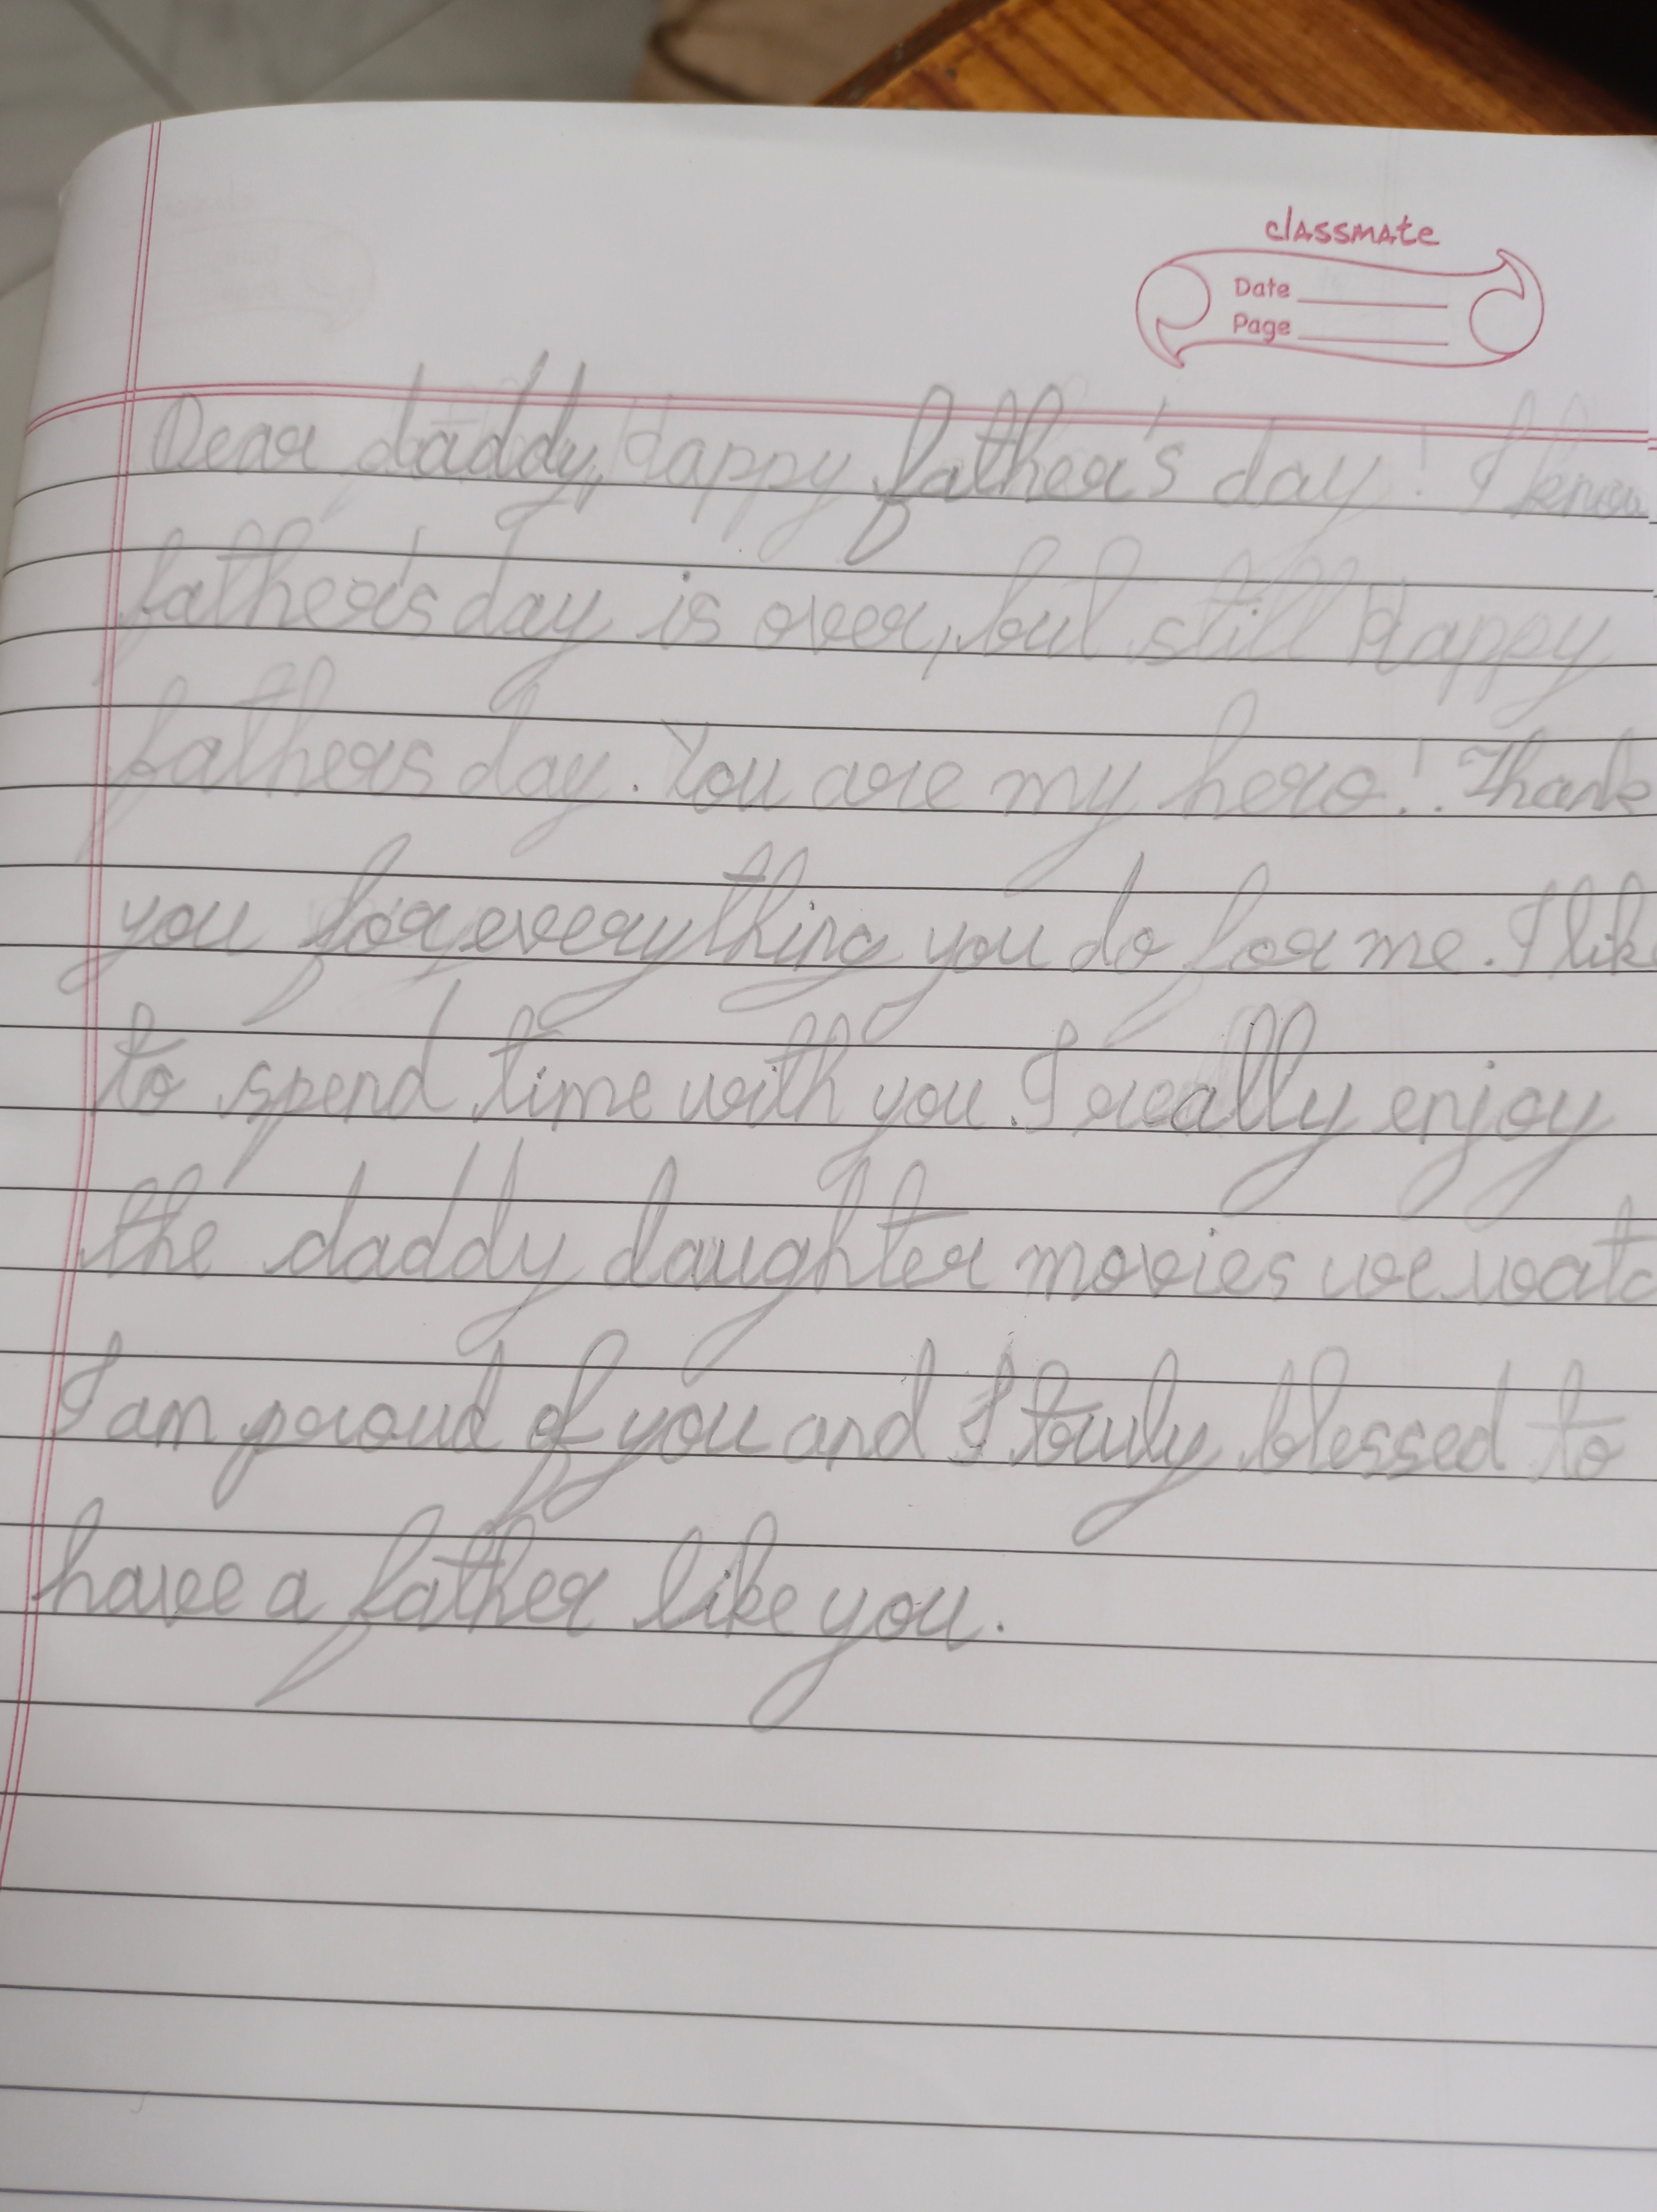 classmate
Date
Page
Dear daddy, Happy father's day! I know
father's day is over, but still Happy
fathers day. You are my hero! . Thank
you for everything you do for me. I lik
to spend time with you. I really enjoy
the daddy daughter movies we watc
I am proud of you and I truly blessed to
have a father like you.